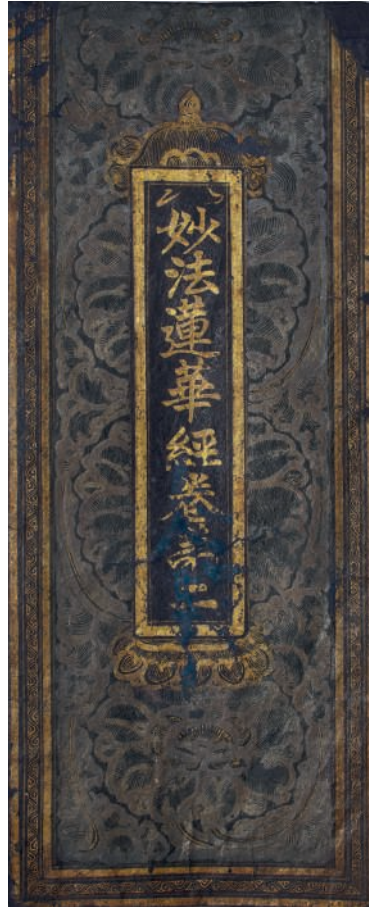 妙法蓮華經卷苐二